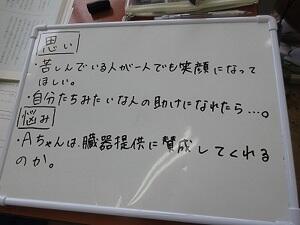 思い
・苦しんでいる人が一人でも笑顔になって
ほしい。
・自分たちみたいな人の助けになれたら…。
悩み
・Aちゃんは、臓器提供に賛成してくれる
のか。